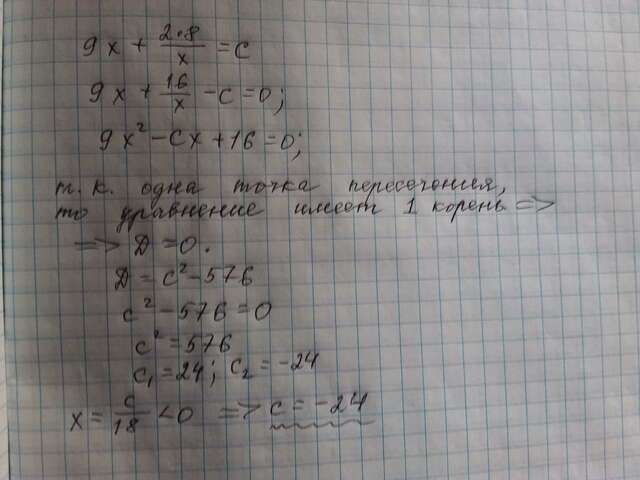 9x + 2·8/x = c
9x + 16/x - c = 0;
9x² - cx + 16 = 0;
т. к. одна точка пересечения,
то уравнение имеет 1 корень =>
=> D = 0.
D = c² - 576
c² - 576 = 0
c² = 576
c₁ = 24; c₂ = -24
x = c/18 < 0 => c = -24